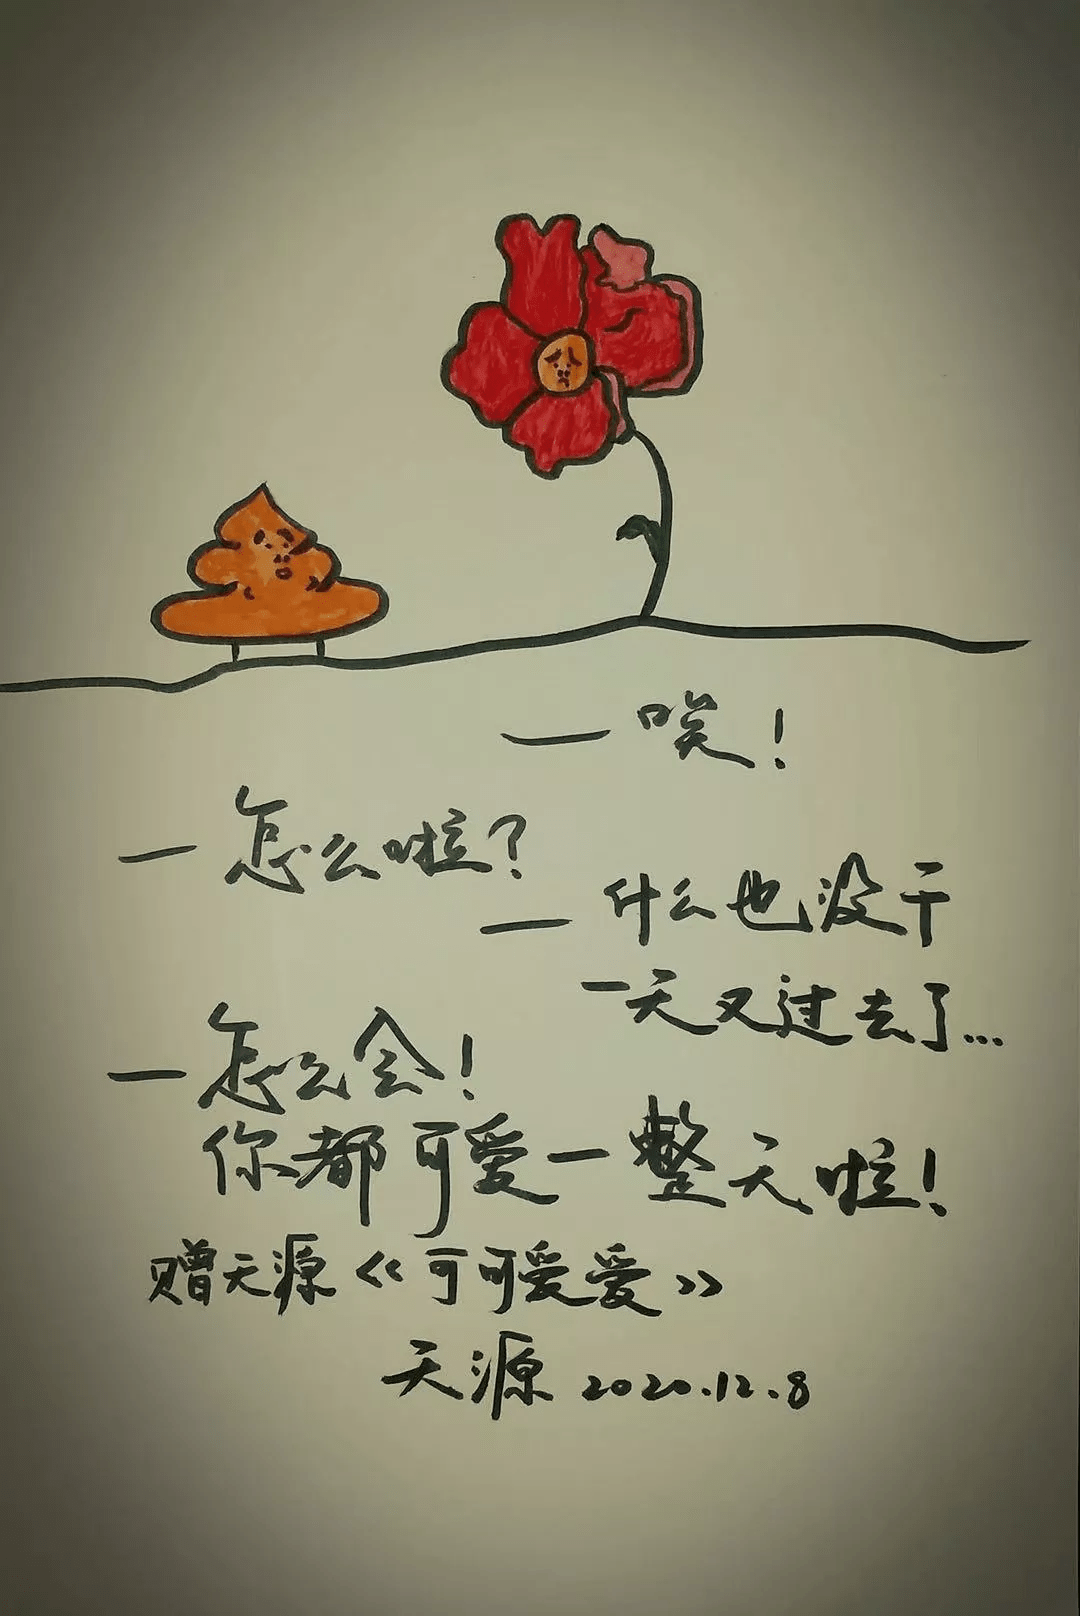 — 唉！
— 怎么啦？
— 什么也没干
一天又过去了...
— 怎么会！
你都可爱一整天啦！
赠天源《可可爱爱》
天源 2020.12.8